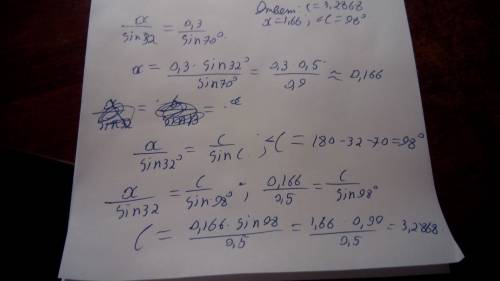 Ответ: c = 3,2868
x = 1,66; <C = 98°
x/sin32 = 0,3/sin70°
x = 0,3 · sin32°/sin70° = 0,3 · 0,5/0,9 ≈ 0,166
x/sin32° = c/sin C; <C = 180-32-70=98°
x/sin32 = c/sin98°; 0,166/0,5 = c/sin98°
C = 0,166 · sin98/0,5 = 1,66 · 0,99/0,5 = 3,2868